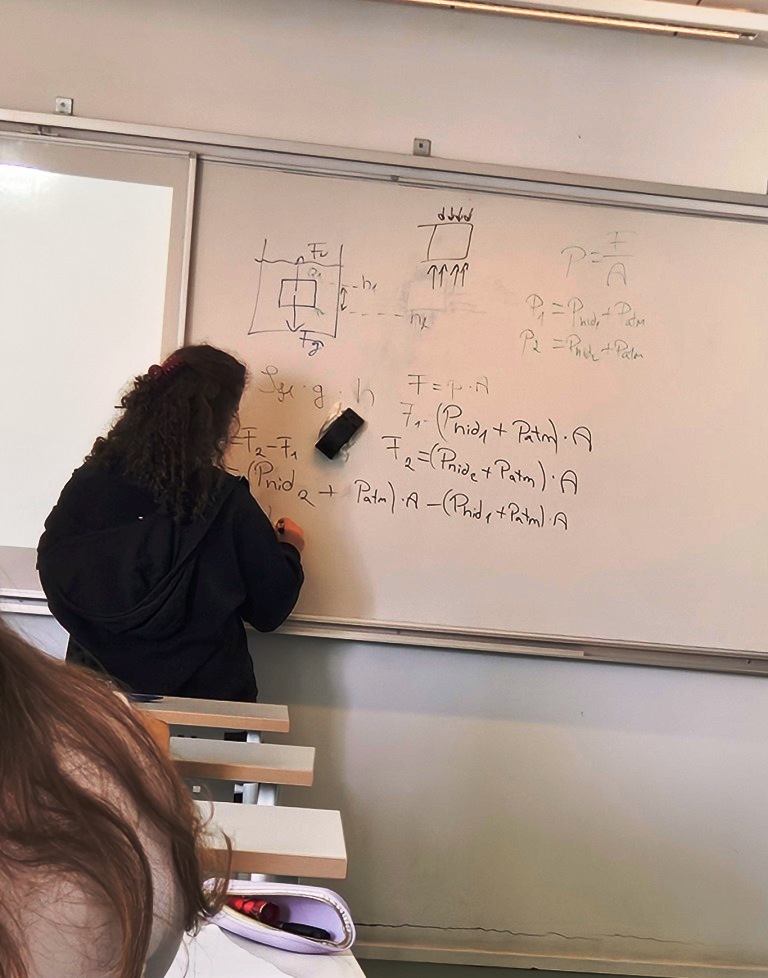 F
h₁
h₂
Fg
P = F/A
P₁ = Phid₁ + Patm
P₂ = Phid₂ + Patm
· g · h
F = p · A
F₁ = (Phid₁ + Patm) · A
= F₂ - F₁
F₂ = (Phid₂ + Patm) · A
= (Phid₂ + Patm) · A - (Phid₁ + Patm) · A